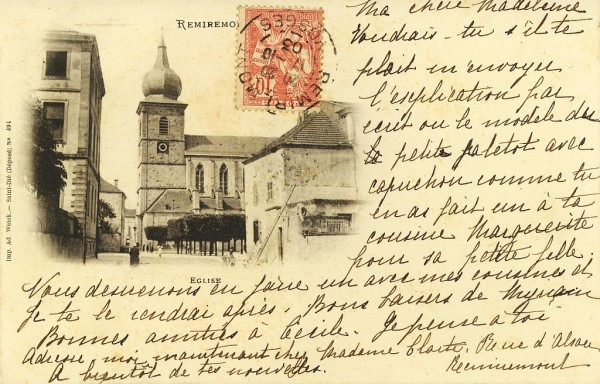 REMIREMO
10
Ma chère Madeleine
Voudrais-tu s'il te
plaît m'envoyer
l'explication par
écrit ou le modèle de
la petite paletot avec
capuchon comme tu
en as fait un à ta
cousine Marguerite
pour sa petite fille,
Imp. Ad. Weick. — Saint-Dié (Déposé) No 491
EGLISE
Nous desuenons en faire un avec mes cousines et
Je te le rendrai après. Bons baisers de
Bonnes amitiés à Cécile. Je pense à toi
Adresse moi maintenant chez Madame Rue d'Alsace
Remiremont
A bientôt de tes nouvelles.